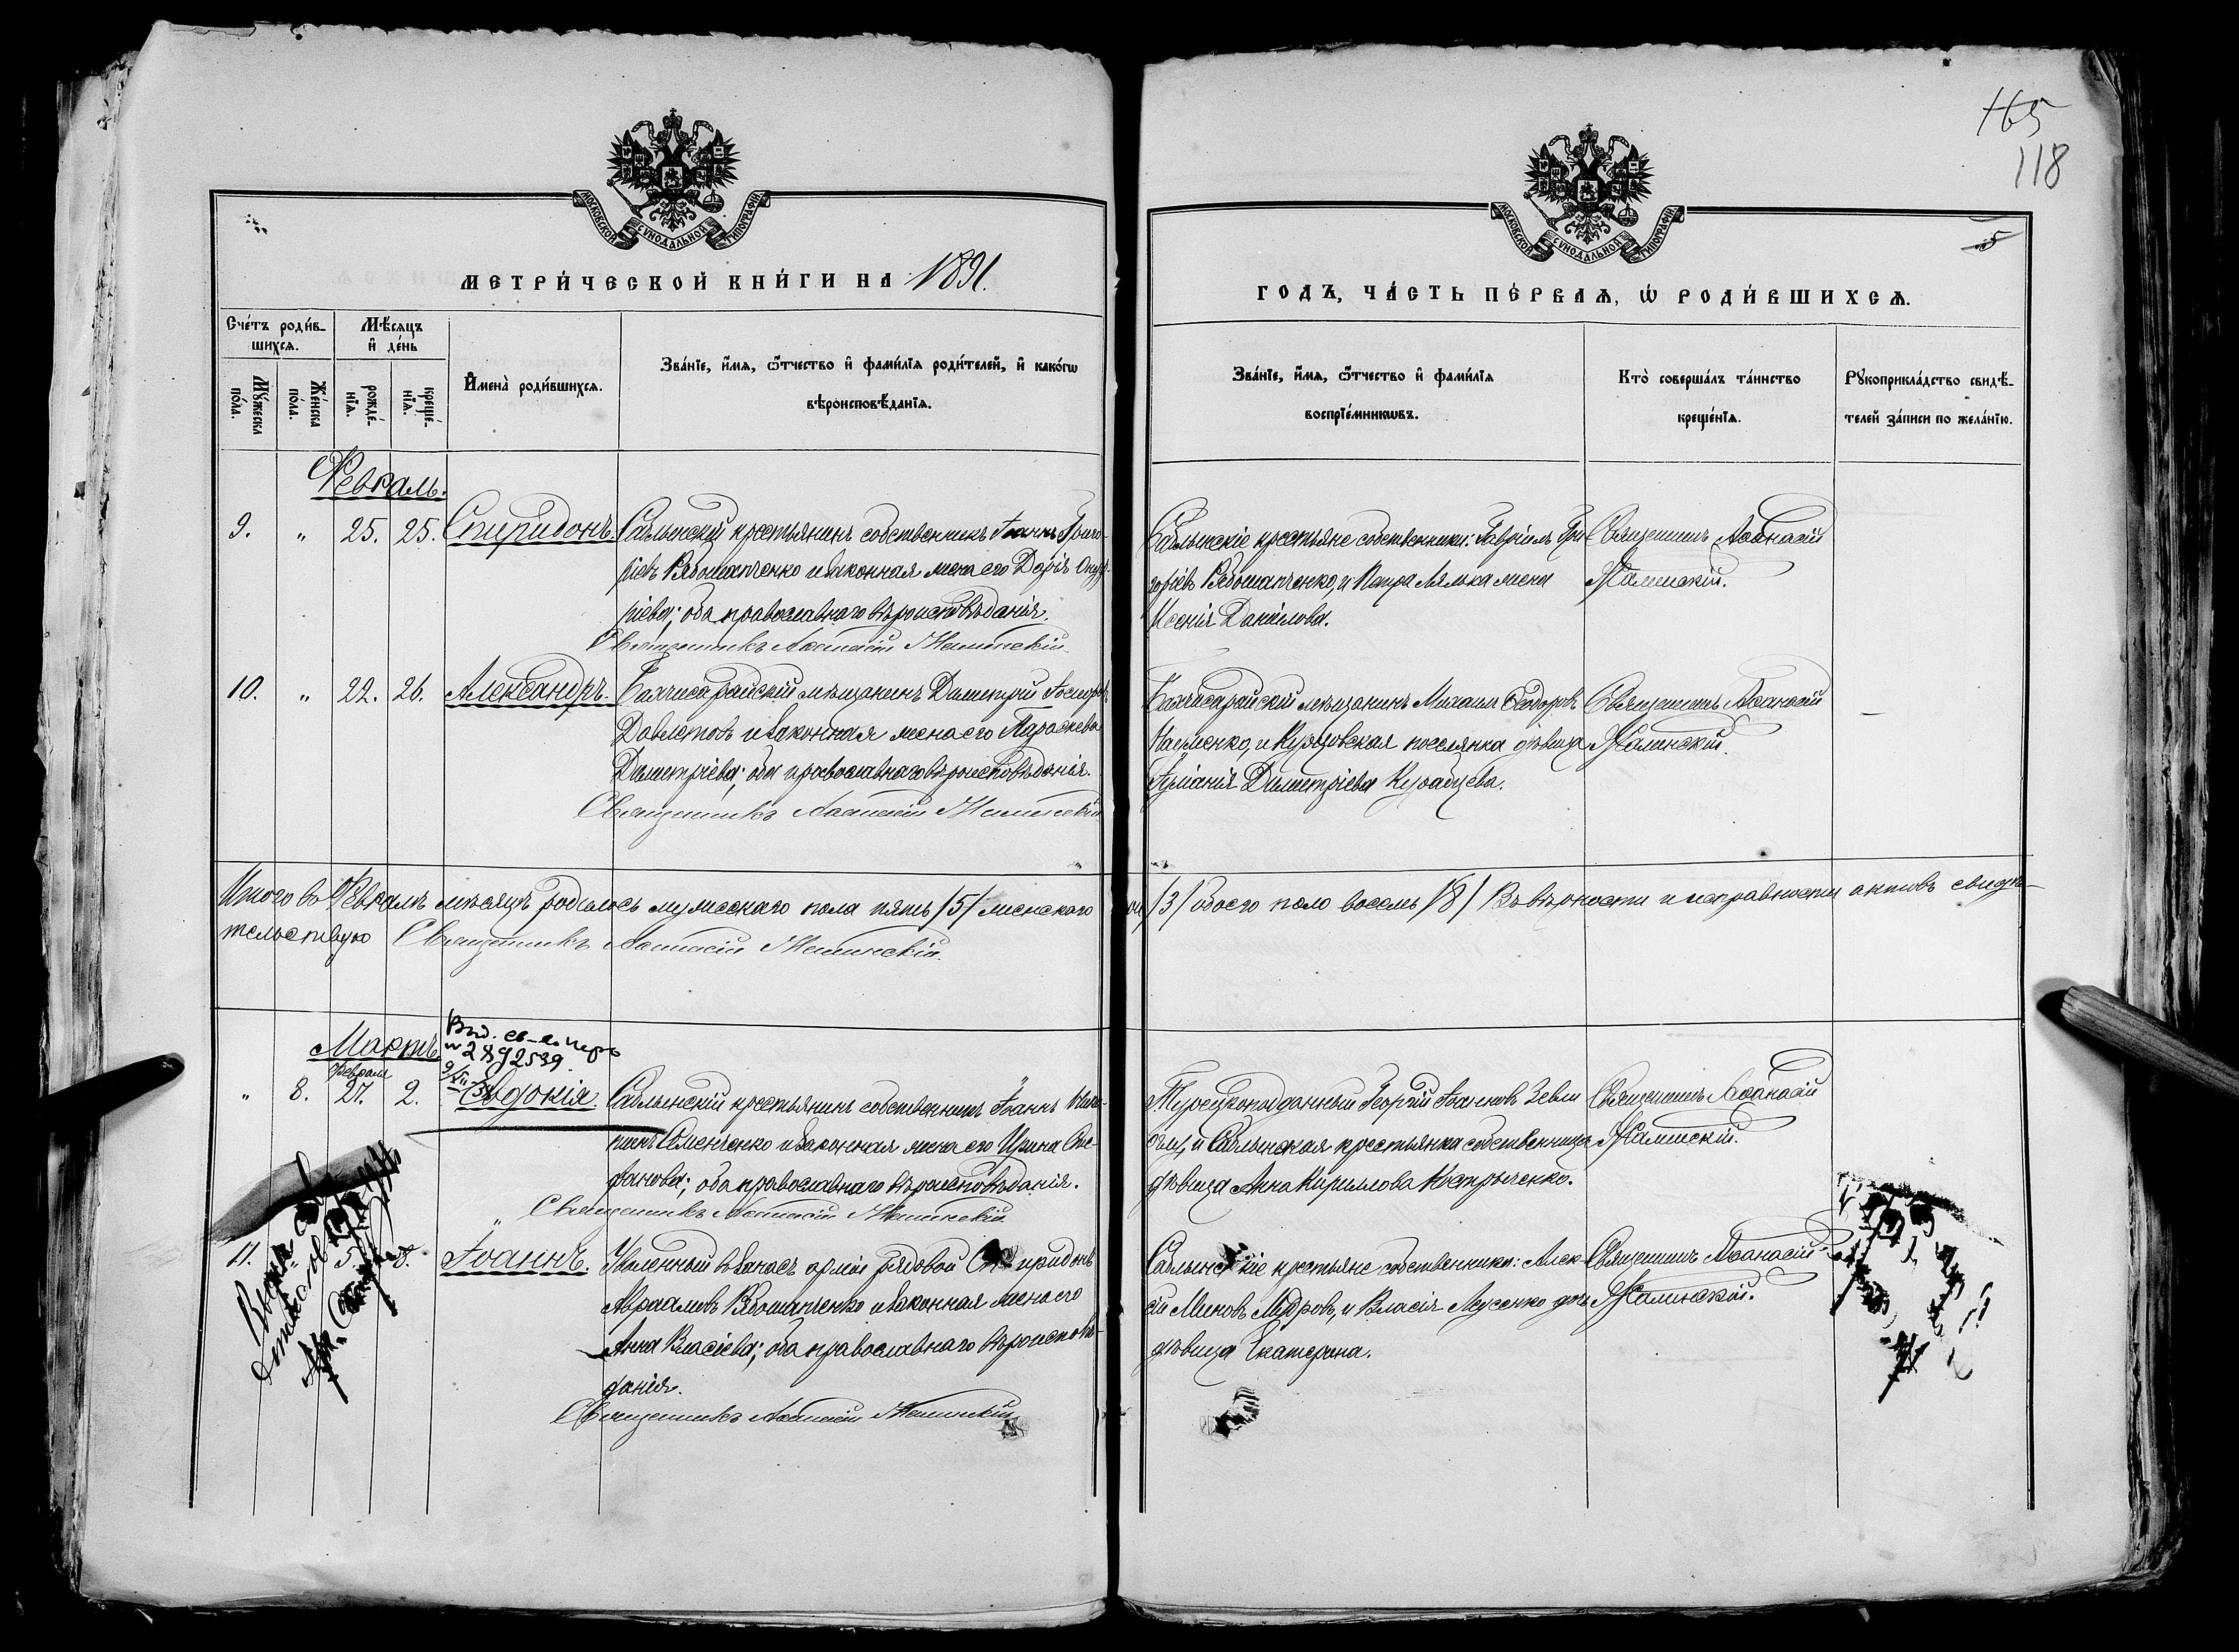 165
118
МОСКОВСКОЙ СѴНОДАЛЬНОЙ ТИПОГРАФІИ.
МЕТРИ́ЧЕСКОЙ КНИ́ГИ НА 1891.
Сче́тъ роди́в-
шихсѧ.
Мѣ́сѧцъ
и҆ де́нь
Мꙋ́жеска
по́ла.
Же́нска
по́ла.
рожде́-
нїѧ.
креще́-
нїѧ.
И҆мена̀ роди́вшихсѧ.
Зва́нїе, и҆́мѧ, ѻ҆́тчество и҆ фами́лїѧ роди́телей, и҆ како́гѡ
вѣроисповѣ́данїѧ.
Февраль.
9. " 25. 25. Спиридонъ.
Саблынскій крестьянинъ собственникъ Іоаннъ Григо-
ріевъ Рябошапченко и законная жена его Дарія Онуф-
ріева; оба православнаго вѣроисповѣданія.
Священникъ Аѳанасій
10. " 22. 26. Александръ.
Бахчисарайскій мѣщанинъ Димитрій
Давлетовъ и законная жена его Параскева
Димитріева; оба православнаго вѣроисповѣданія.
Священникъ Аѳанасій
Итого въ Февралѣ мѣсяцѣ родилось мужескаго пола пять /5/ женскаго
тельствую Священникъ Аѳанасій
Мартъ.
Выд. св-во
2892539
Февраля
" 8. 27. 2. Евдокія.
Саблынскій крестьянинъ собственникъ Іоаннъ
Семенченко и законная жена его Ирина Сте-
фанова; оба православнаго вѣроисповѣданія.
Священникъ Аѳанасій
11. " 5. 8. Іоаннъ.
Уволенный въ запасъ арміи рядовой Спиридонъ
Авраамовъ Рябошапченко и законная жена его
Анна Власіева; оба православнаго вѣроисповѣ-
данія.
Священникъ Аѳанасій
МОСКОВСКОЙ СѴНОДАЛЬНОЙ ТИПОГРАФІИ.
5
ГОДЪ, ЧА́СТЬ ПЕ́РВАѦ, Ѡ҆ РОДИ́ВШИХСѦ.
Зва́нїе, и҆́мѧ, ѻ҆́тчество и҆ фами́лїѧ
воспрїе́мникѡвъ.
Кто̀ соверша́лъ та́инство
креще́нїѧ.
Рꙋкоприкла́дство свидѣ́-
телей за́писи по жела́нїю.
Саблынскіе крестьяне собственники: Гавріилъ Гри-
горіевъ Рябошапченко, и Петра Лялька жена
Ксенія Данилова.
Священникъ Аѳанасій
Бахчисарайскій мѣщанинъ Михаилъ Ѳеодоровъ
Науменко, и поселянка дѣвица
Димитріева
Священникъ Аѳанасій
/3/ обоего пола восемь /8/ Въ вѣрности и исправности актовъ свидѣ-
Турецкоподданный Георгій Іоанновъ
и Саблынская крестьянка собственница
дѣвица Анна Кириллова
Священникъ Аѳанасій
Саблынскіе крестьяне собственники: Алек-
сій Миновъ и Власія Мусенко дочь
дѣвица Екатерина.
Священникъ Аѳанасій